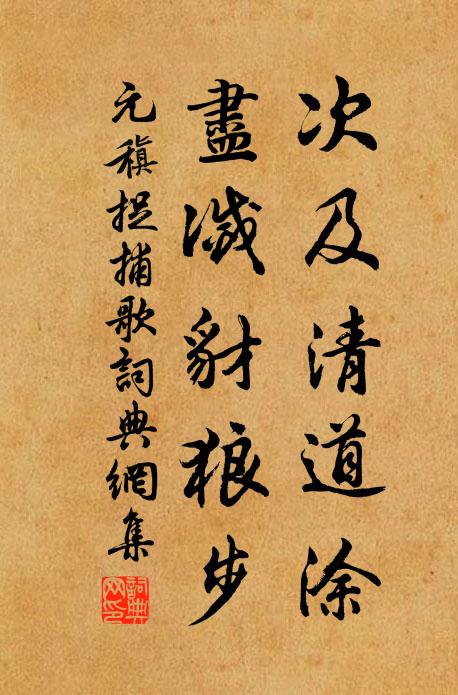 次及清道涂
盡滅豺狼步
元稹捉捕歌詞典網集
詞典網印